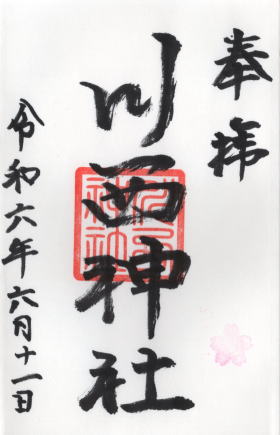 奉拝
川西神社
令和六年六月十一日